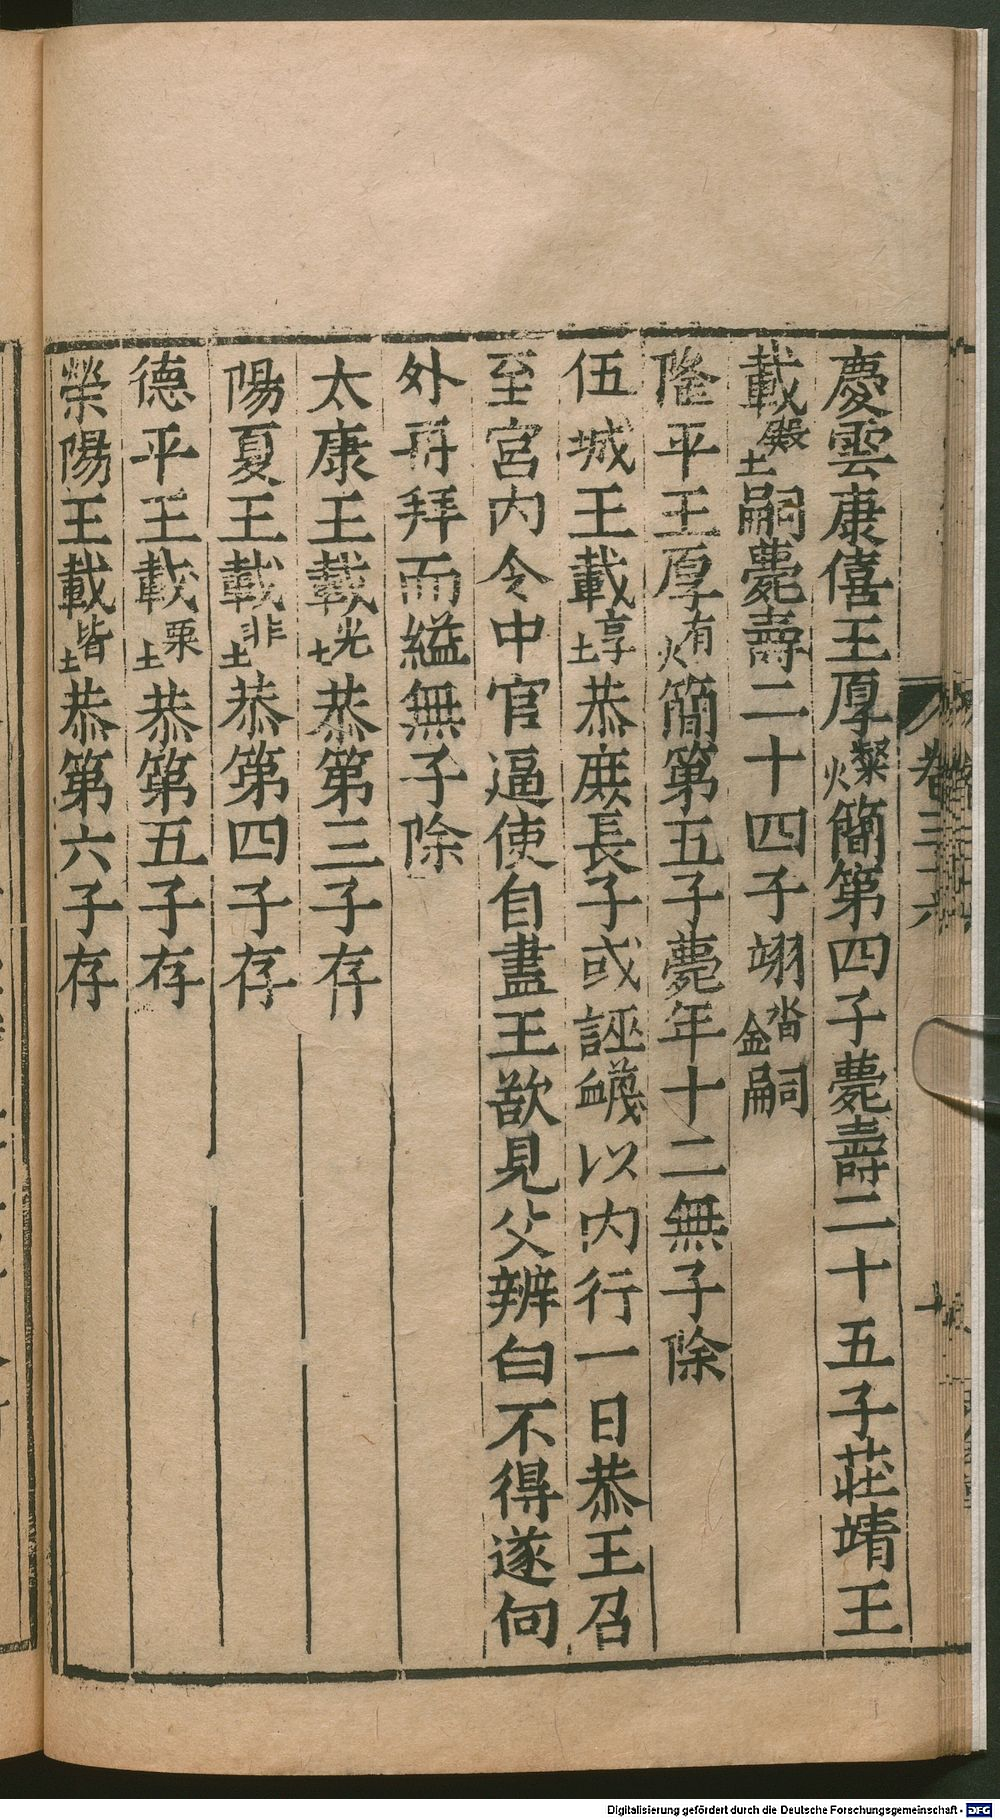 慶雲康僖王厚㷂簡第四子薨壽二十五子莊靖王
載𡒉嗣薨壽二十四子翊錔嗣
隆平王厚烠簡第五子薨年十二無子除
伍城王載埻恭庶長子或誣衊以内行一日恭王召
至宮内令中官逼使自盡王欲見父辨白不得遂向
外再拜而縊無子除
太康王載𡌥恭第三子存
陽夏王載𡌦恭第四子存
德平王載塛恭第五子存
榮陽王載堦恭第六子存
卷三十六
Digitalisierung gefördert durch die Deutsche Forschungsgemeinschaft - DFG